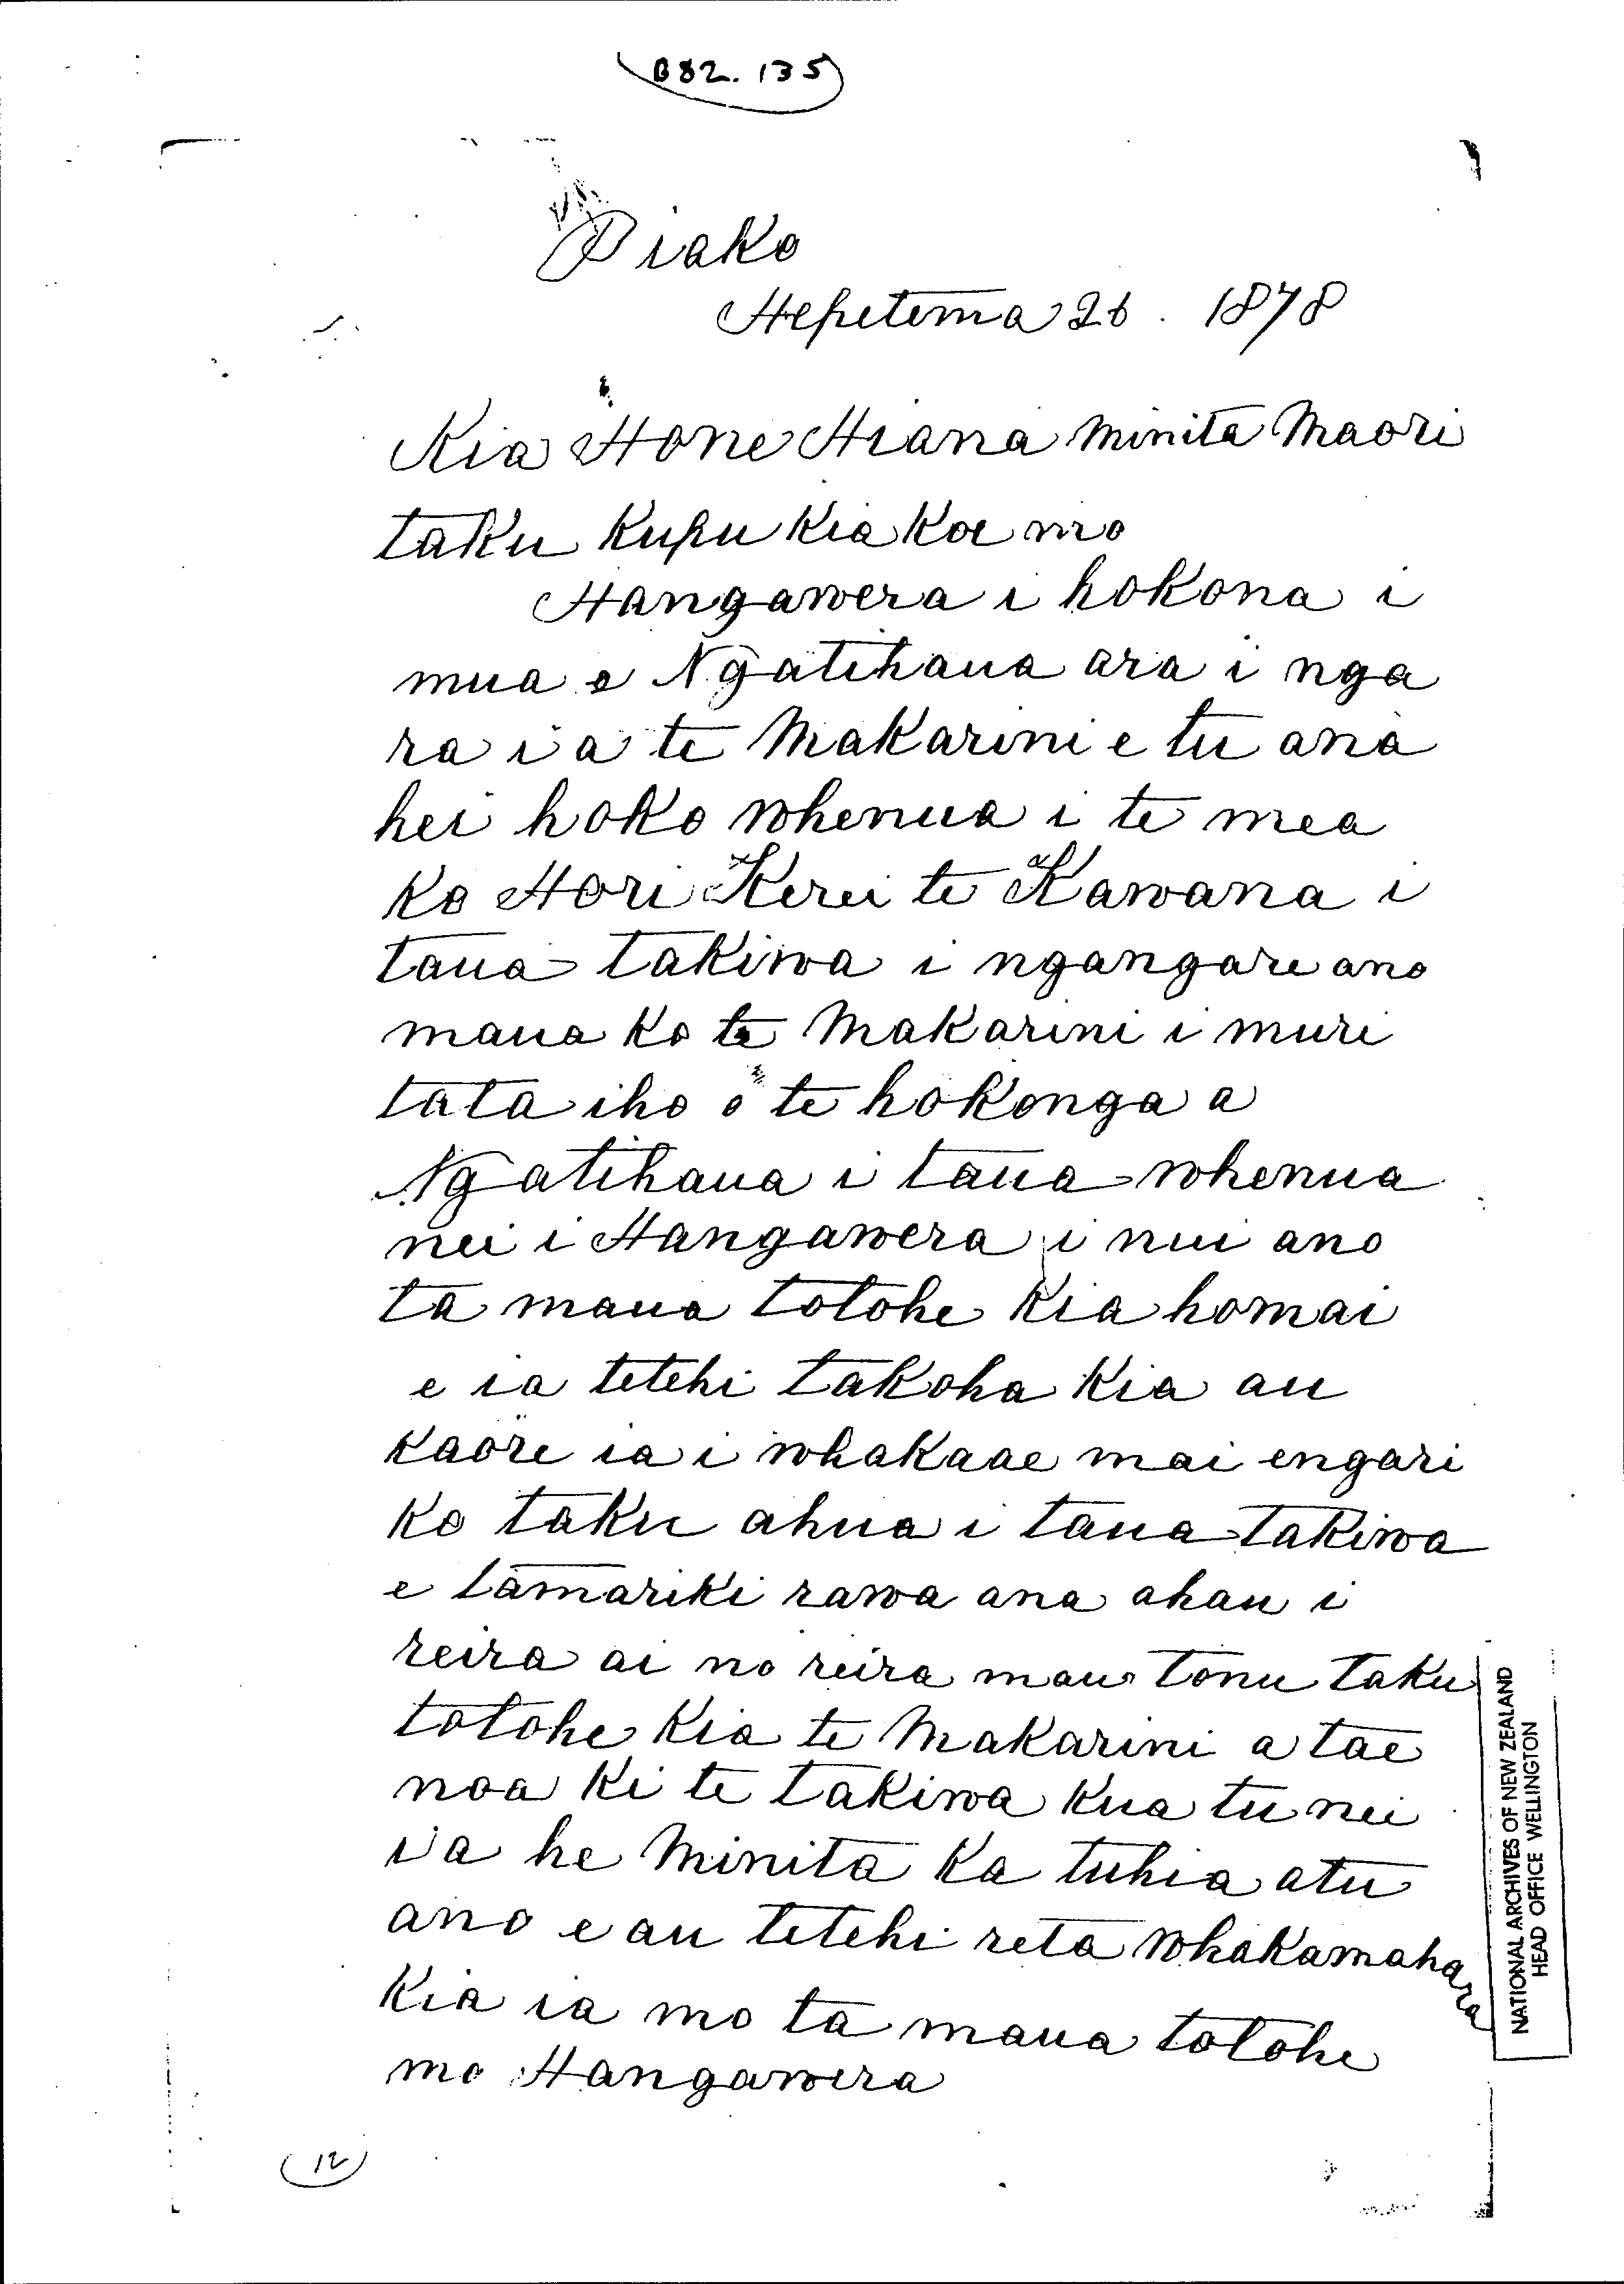 B82.135
Piako
Hepetema 26. 1878
Kia Hone Hiana Minita Maori
taku kupu kia koe mo
Hangawera i hokona i
mua e Ngatihaua ara i nga
ra i a te Makarini e tu ana
hei hoko whenua i te mea
ko Hori Kerei te Kawana i
taua takiwa i ngangare ano
maua ko te Makarini i muri
tata iho o te hokonga a
Ngatihaua i taua whenua
nei i Hangawera i nui ano
ta maua totohe kia homai
e ia tetehi takoha kia au
kaore ia i whakaae mai engari
ko taku ahua i taua takiwa
e tamariki rawa ana ahau i
reira ai no reira mau tonu taku
totohe kia te Makarini a tae
noa ki te takiwa kua tu nei
ia he Minita ka tuhia atu
ano e au tetehi reta whakamahara
kia ia mo ta maua totohe
mo Hangawera
12
NATIONAL ARCHIVES OF NEW ZEALAND
HEAD OFFICE WELLINGTON